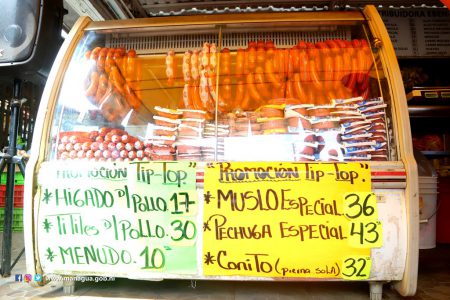 TRIBUIDORA EBEN
PROMOCIÓN TIP-TOP"
* HIGADO D/POLLO. 17
* TITILES D/POLLO. 30
* MENUDO. 10
"PROMOCIÓN TIP-TOP"
* MUSLO ESPECIAL 36
* PECHUGA ESPECIAL 43
* CONITO (pierna sola) 32
www.managua.gob.ni